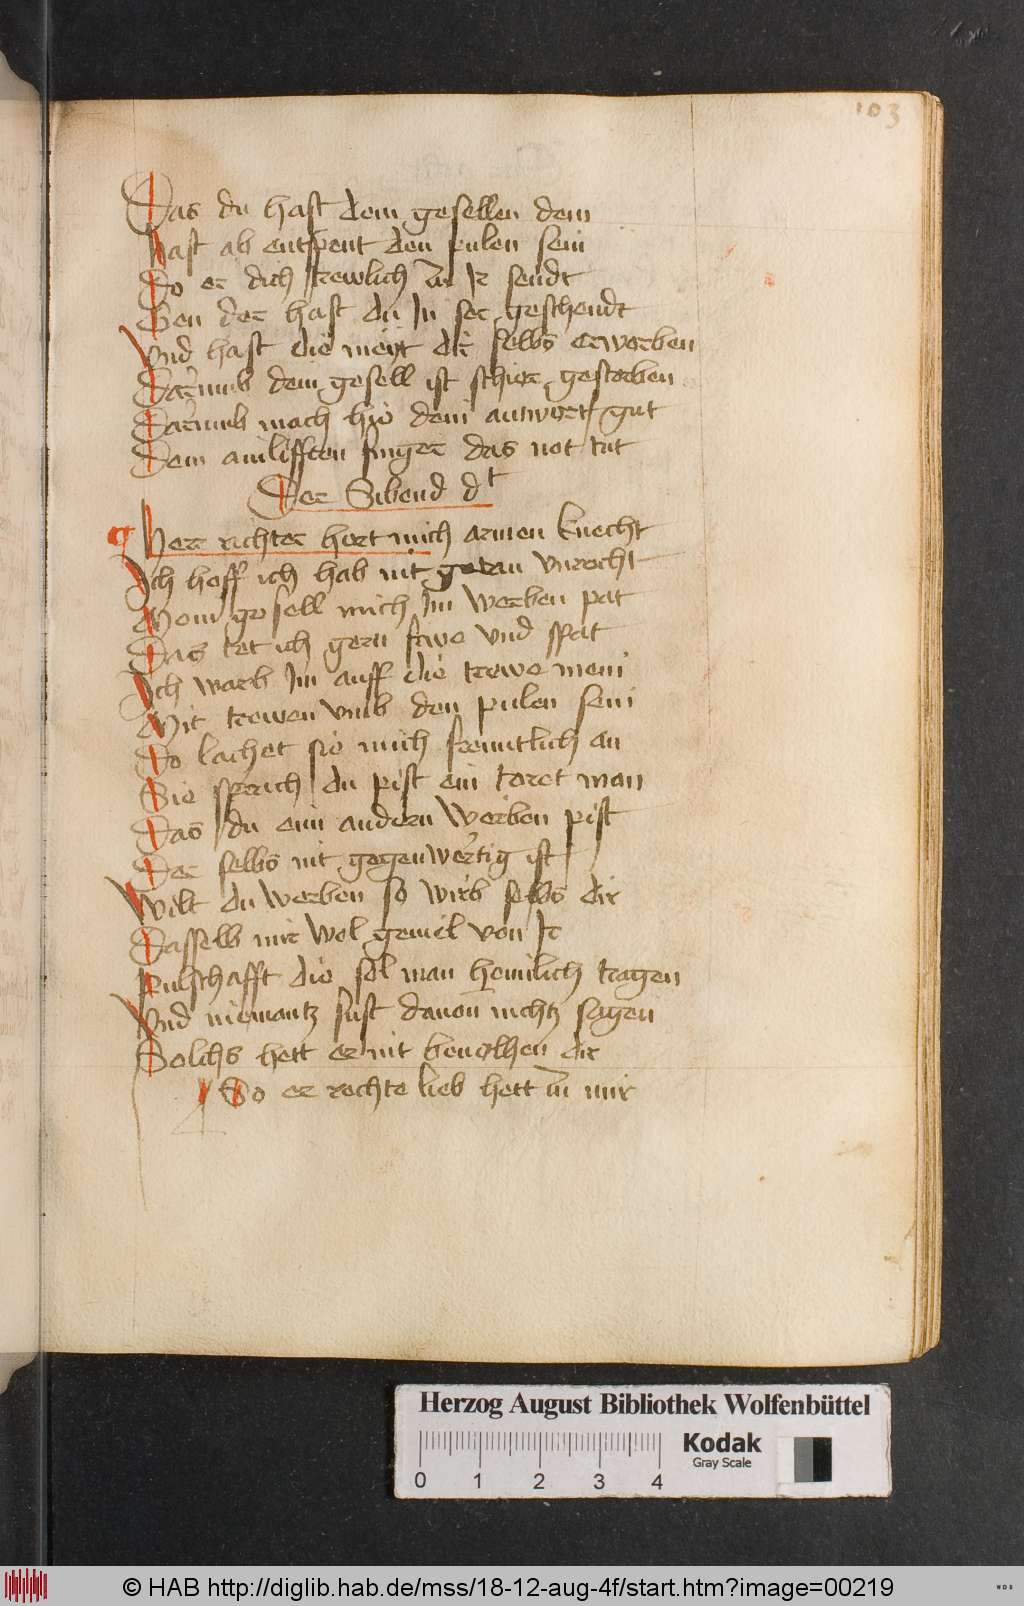 103
Das du hast dem gesellen dein
hast ab entspent den pulen sein
Do er dich trewlich zu Ir sendt
Gen der hast du In ser geschendt
Vnd hast die meyt dir selbs erworben
Darumb dein gesell ist schier gestorben
Darumb mach hie dein antwort gut
Dem ainlifften finger das not tut
Der Sibend dt
Herr richter hort mich armen knecht
Ich hoff ich hab nit getan vnrecht
Mein gesell mich Im werben pat
Das tet ich gern frwe vnd spat
Ich warb Im auff die trewe mein
Mit trewen vmb den pulen sein
Do lachet sie mich freuntlich an
Sie sprach du pist ein toret man
Das du eim andern werben pist
Der selbs nit gegenwertig ist
Wilt du werben so wirb selbs dir
Dasselb mir wol geuiel von Ir
Pulschafft die sol man heimlich tragen
Vnd niemantz sust dauon nichtz sagen
Solichs hett er nit beuolhen dir
So er rechte lieb hett zu mir
Herzog August Bibliothek Wolfenbüttel
Kodak
Gray Scale
0 1 2 3 4
© HAB http://diglib.hab.de/mss/18-12-aug-4f/start.htm?image=00219